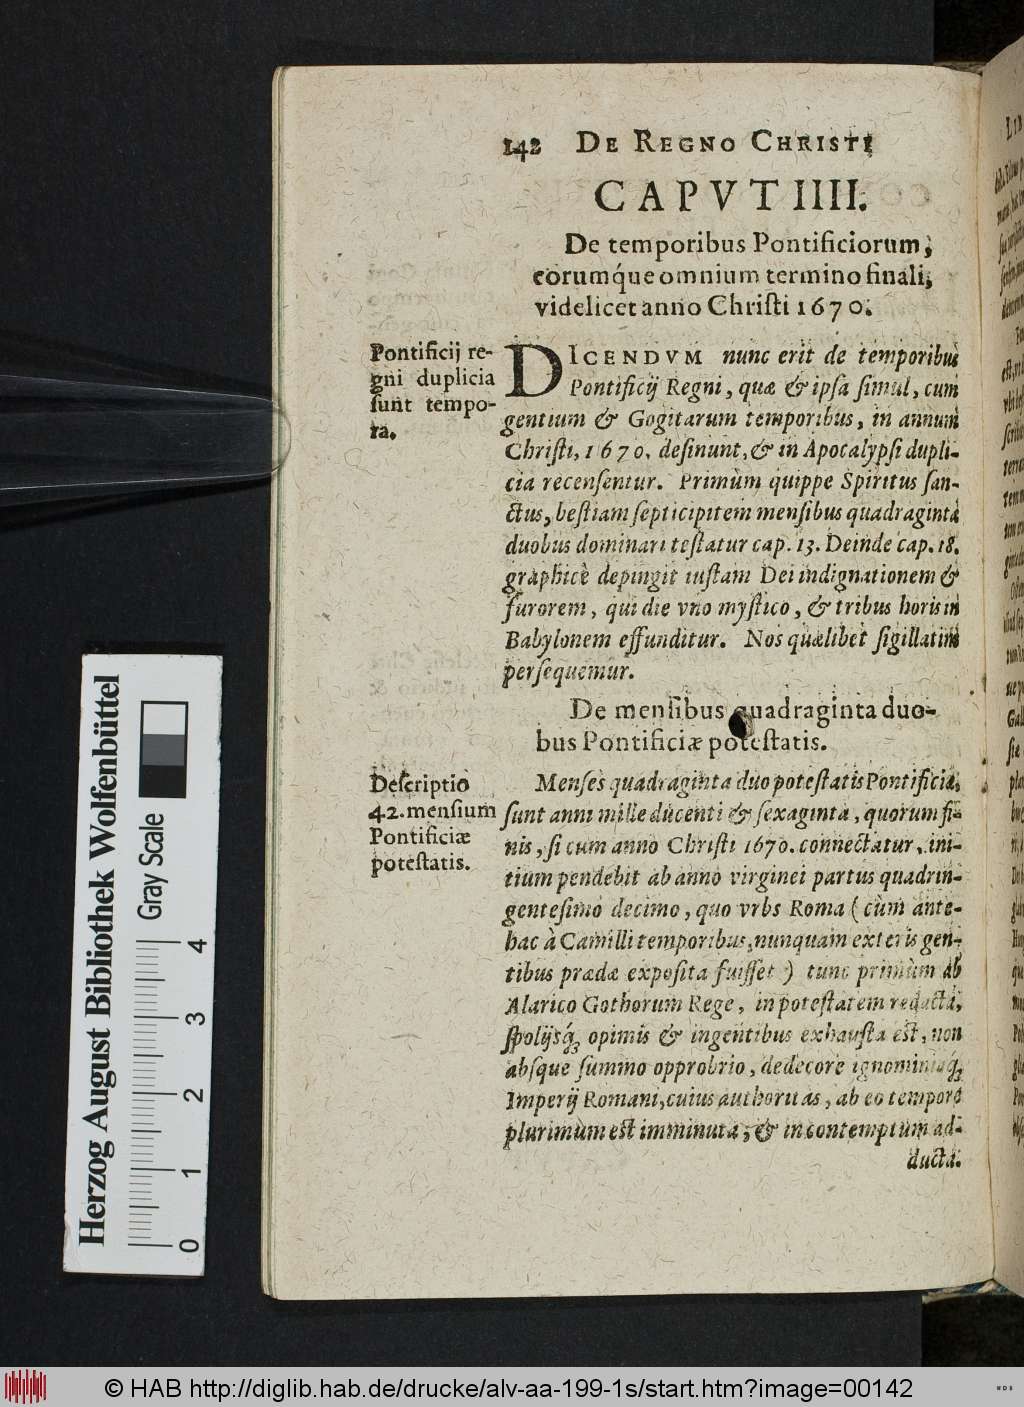 142 DE REGNO CHRISTI
CAPVT IIII.
De temporibus Pontificiorum,
eorumq́ue omnium termino finali,
videlicet anno Chriſti 1670.
Pontificij re-
gni duplicia
ſunt tempo-
ra.
DICENDVM nunc erit de temporibus
Pontificij Regni, quæ & ipſa ſimul, cum
gentium & Gogitarum temporibus, in annum
Chriſti, 1670. deſinunt, & in Apocalypſi dupli-
cia recenſentur. Primùm quippe Spiritus ſan-
ctus, beſtiam ſepticipitem menſibus quadraginta
duobus dominari teſtatur cap. 13. Deinde cap. 18.
graphicè depingit iuſtam Dei indignationem &
furorem, qui die vno myſtico, & tribus horis in
Babylonem effunditur. Nos quælibet ſigillatim
perſequemur.
De menſibus quadraginta duo-
bus Pontificiæ poteſtatis.
Deſcriptio
42. menſium
Pontificiæ
poteſtatis.
Menſes quadraginta duo poteſtatis Pontificiæ,
ſunt anni mille ducenti & ſexaginta, quorum fi-
nis, ſi cum anno Chriſti 1670. connectatur, ini-
tium pendebit ab anno virginei partus quadrin-
genteſimo decimo, quo vrbs Roma (cùm ante-
hac à Camilli temporibus, nunquam exteris gen-
tibus prædæ expoſita fuiſſet) tunc primùm ab
Alarico Gothorum Rege, in poteſtatem redacta,
ſpolijsq́; opimis & ingentibus exhauſta eſt, non
abſque ſummo opprobrio, dedecore ignominiaq́;
Imperij Romani, cuius authoritas, ab eo tempore
plurimùm eſt imminuta, & in contemptum ad-
ducta.
Herzog August Bibliothek Wolfenbüttel
Gray Scale
0 1 2 3 4
© HAB http://diglib.hab.de/drucke/alv-aa-199-1s/start.htm?image=00142